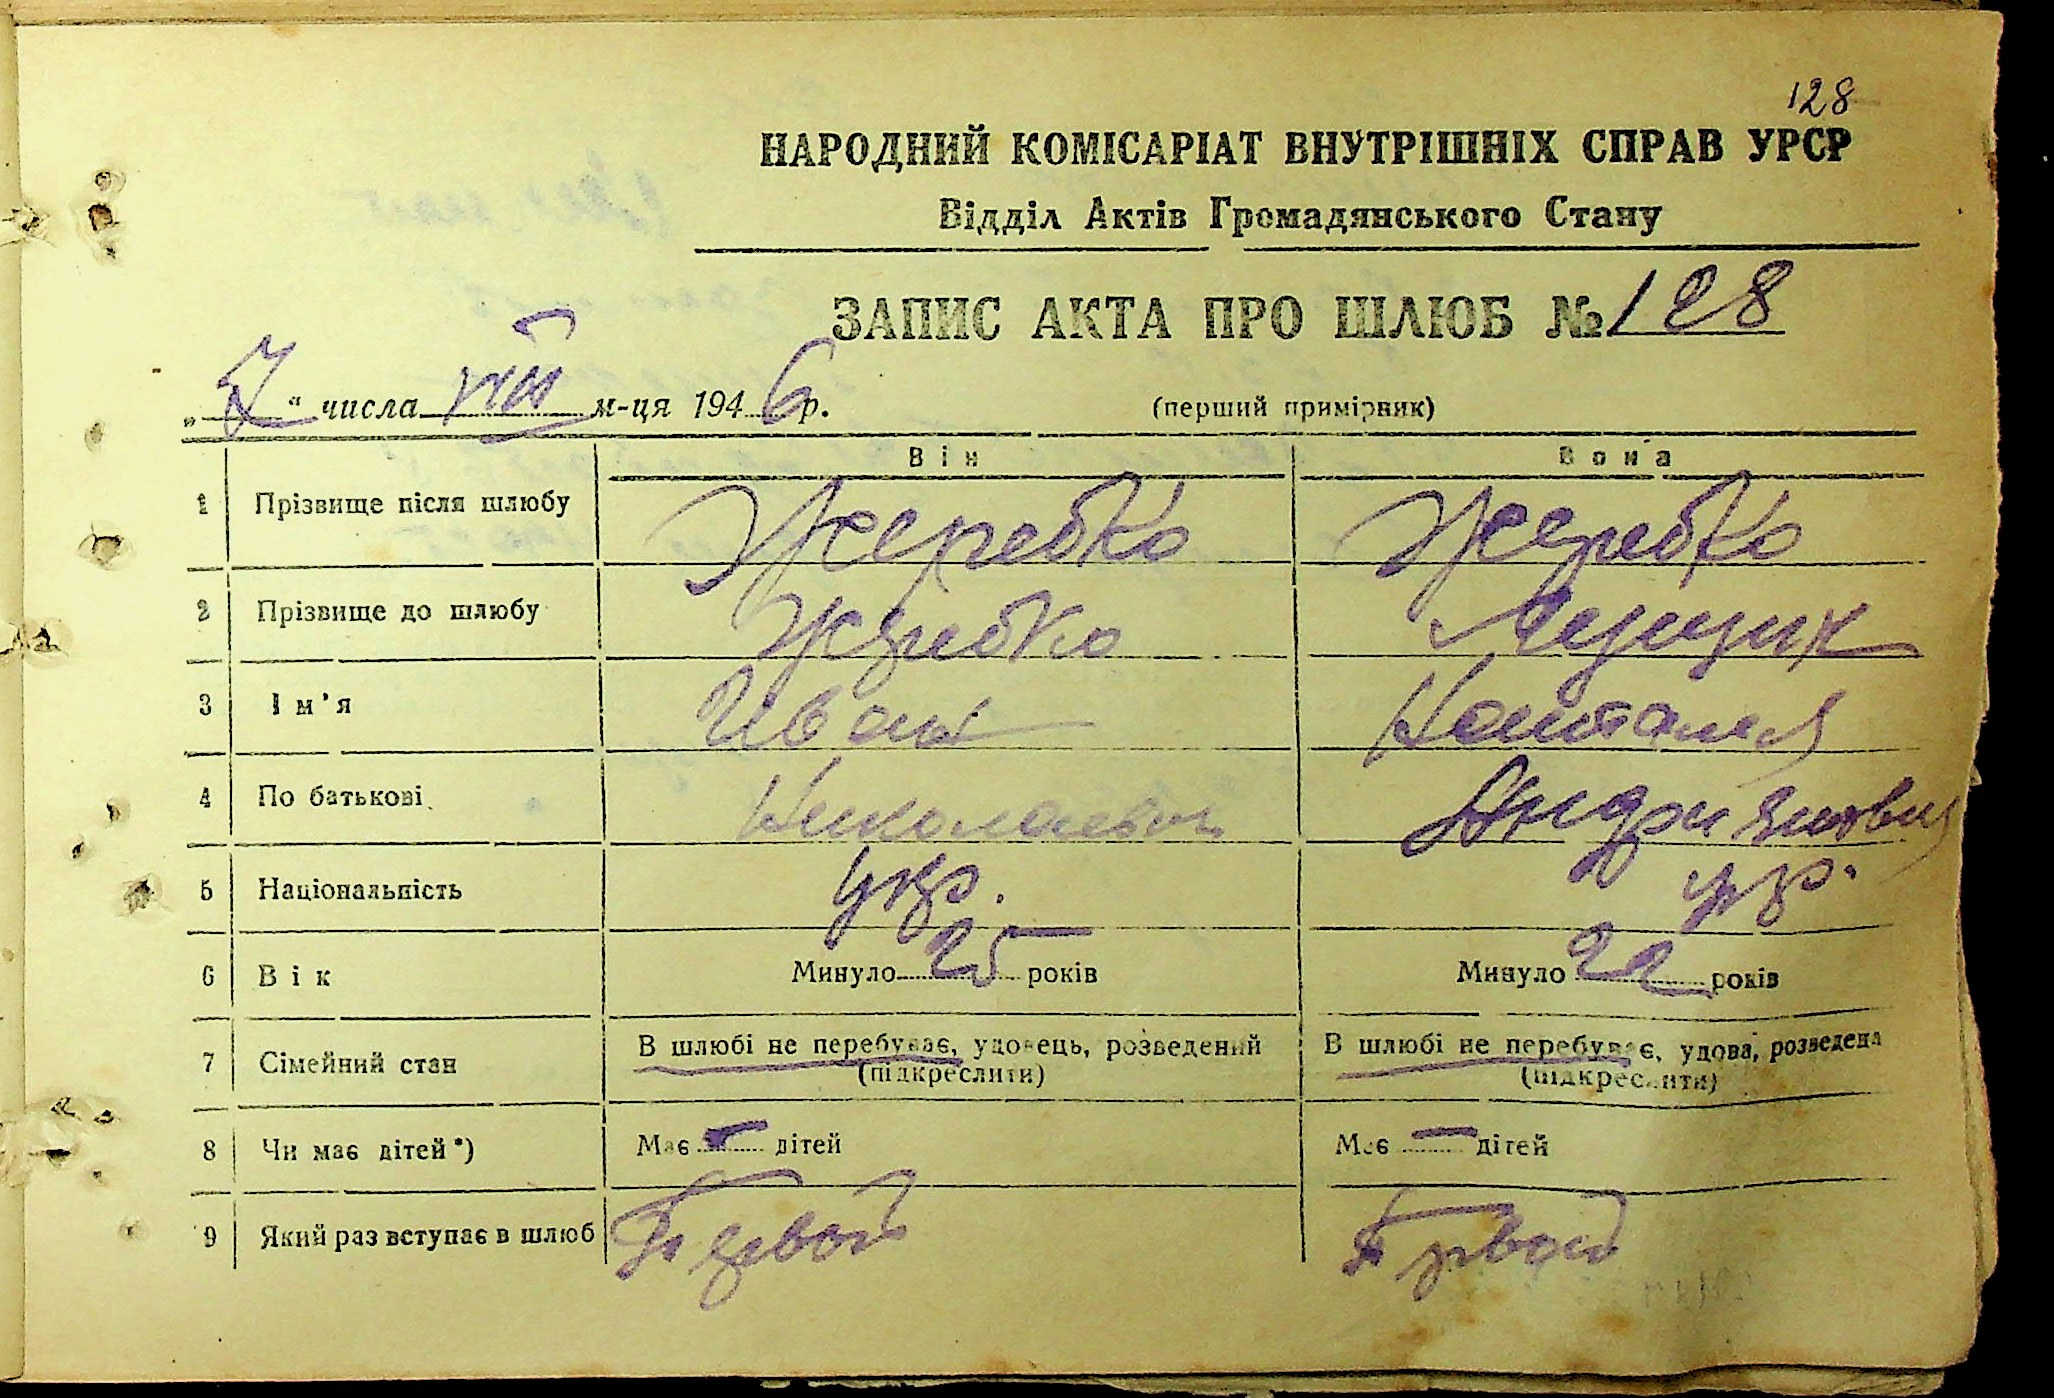 128
НАРОДНИЙ КОМІСАРІАТ ВНУТРІШНІХ СПРАВ УРСР
Відділ Актів Громадянського Стану
ЗАПИС АКТА ПРО ШЛЮБ № 128
„7“ числа VIII м-ця 1946 р. (перший примірник)
Він Вона
1 Прізвище після шлюбу Жеребко Жеребко
2 Прізвище до шлюбу Жеребко
3 Ім'я Иван Наталия
4 По батькові Николаевич
5 Національність укр. укр.
6 Вік Минуло 25 років Минуло 22 років
7 Сімейний стан В шлюбі не перебуває, удовець, розведений В шлюбі не перебуває, удова, розведена
(підкреслити) (підкреслити)
8 Чи має дітей *) Має — дітей Має — дітей
9 Який раз вступає в шлюб Первой Первой